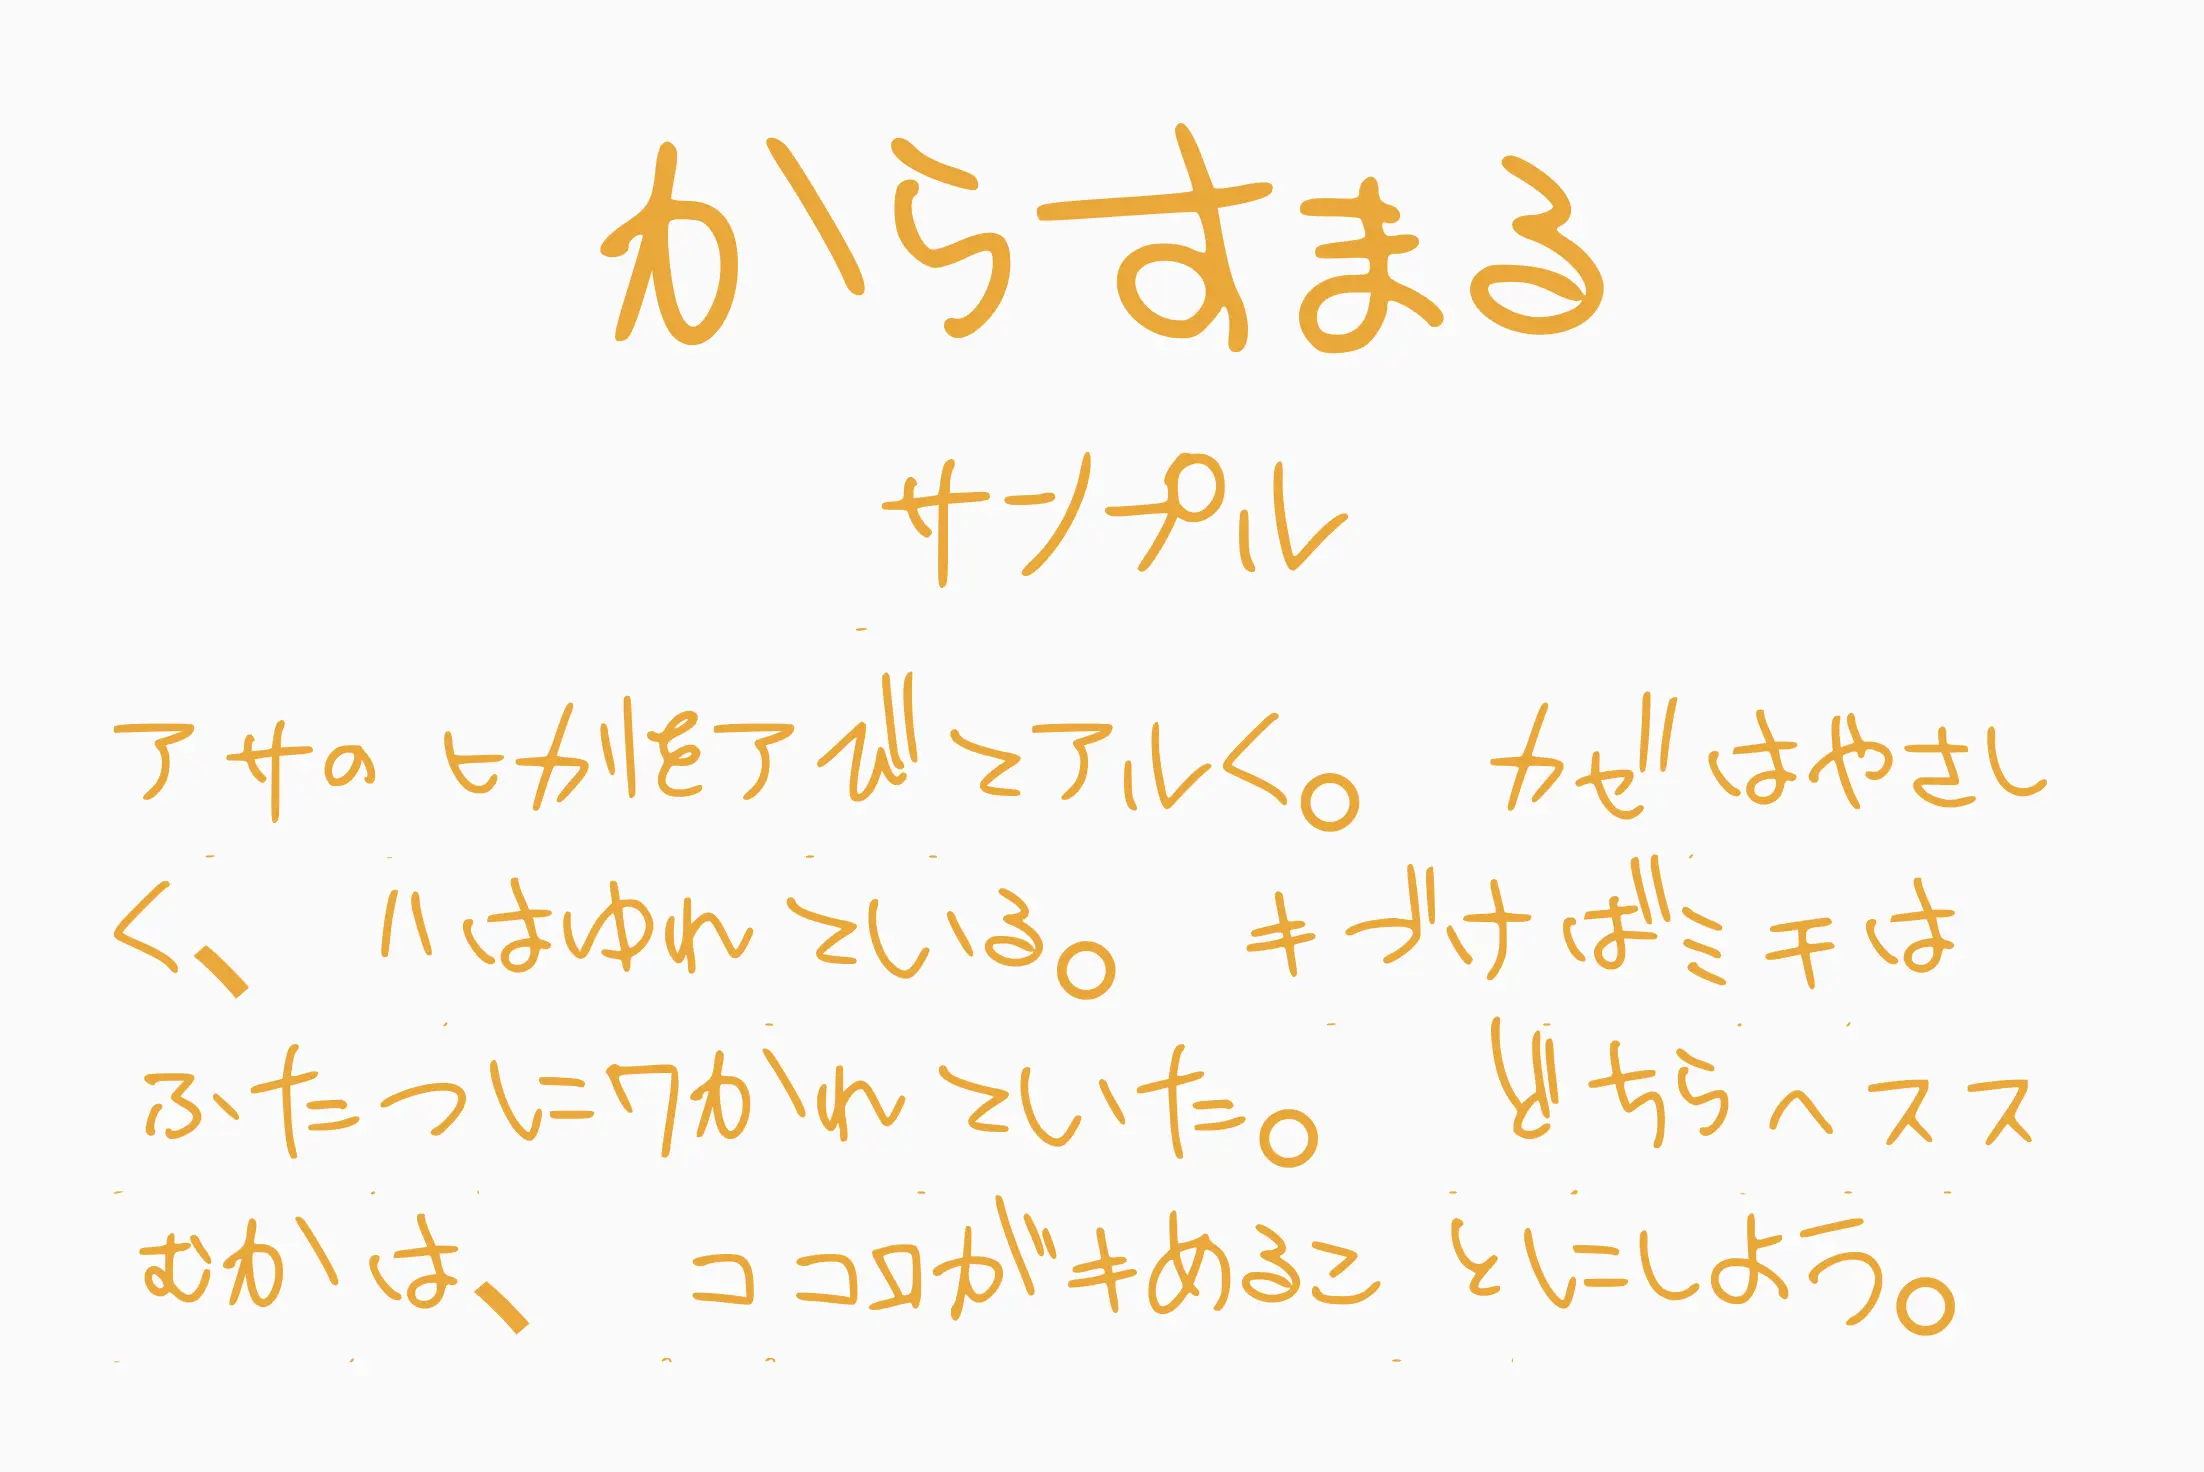 からすまる
サンプル
アサのヒカリをアびてアルく。 カぜはやさし
く、ハはゆれている。 キづけばミチは
ふたつにワかれていた。 どちらへスス
むかは、 ココロがキめることにしよう。